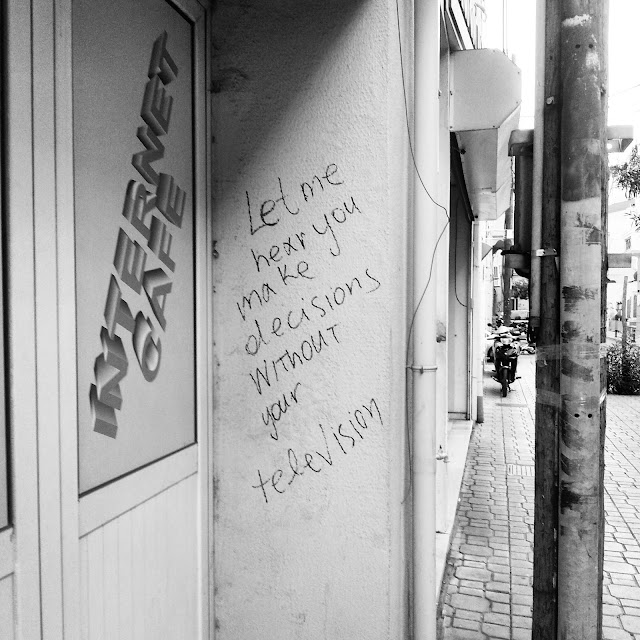 INTERNET
CAFE
Let me
hear you
make
decisions
WITHOUT
your
television